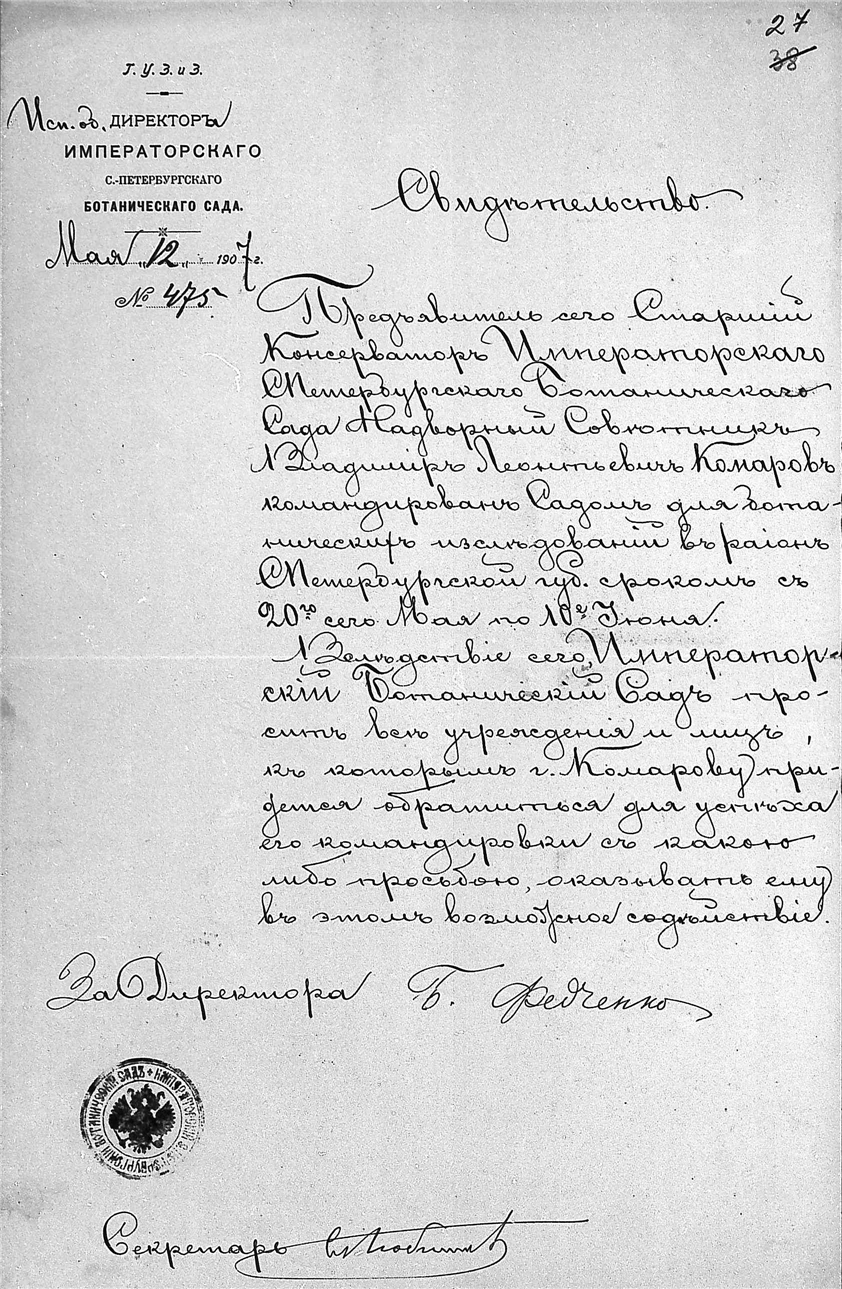 27
38
Г. У. З. и З.
Исп. об. ДИРЕКТОРА
ИМПЕРАТОРСКАГО
С.-ПЕТЕРБУРГСКАГО
БОТАНИЧЕСКАГО САДА.
Мая „12„ 1907 г.
№ 475
Свидѣтельство.
Предъявитель сего Старшій
Консерваторъ Императорскаго
СПетербургскаго Ботаническаго
Сада Надворный Совѣтникъ
Владиміръ Леонтьевичъ Комаровъ
командированъ Садомъ для бота-
ническихъ изслѣдованій въ раіонѣ
СПетербургской губ. срокомъ съ
20го сего Мая по 10е Іюня.
Вслѣдствіе сего, Император-
скій Ботаническій Садъ про-
ситъ всѣ учрежденія и лицъ,
къ которымъ г. Комарову при-
дется обратиться для успѣха
его командировки съ какою
либо просьбою, оказывать ему
въ этомъ возможное содѣйствіе.
За Директора Б. Федченко
ИМПЕРАТОРСКІЙ С. ПЕТЕРБУРГСКІЙ БОТАНИЧЕСКІЙ САДЪ
Секретарь